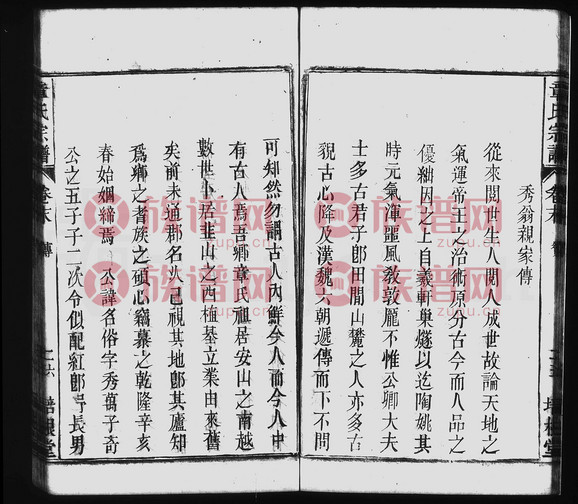 秀翁親家傳
從來閱世生人閱人成世故論天地之
氣運帝王之治術原分古今而人品之
優絀因之上自羲軒巢燧以迄陶姚其
時元氣渾噩風敎敦龎不惟公卿大夫
士多古君子卽田間山麓之人亦多古
貌古心降及漢魏六朝遞傳而下不問
可知然勿謂古人內鮮今人而今人中
有古人焉吾鄉章氏祖居安山之南越
數世卜居韭山之西植基立業由來舊
矣前未通郡名次已視其地卽其廬知
爲鄉之著族之碩心竊慕之乾隆辛亥
春始姻締焉 公諱名俗字秀萬子奇
公之五子子二次令似配紅卽予長男
章氏宗譜
卷末
傳
培槐堂
族谱网
zupu.cn